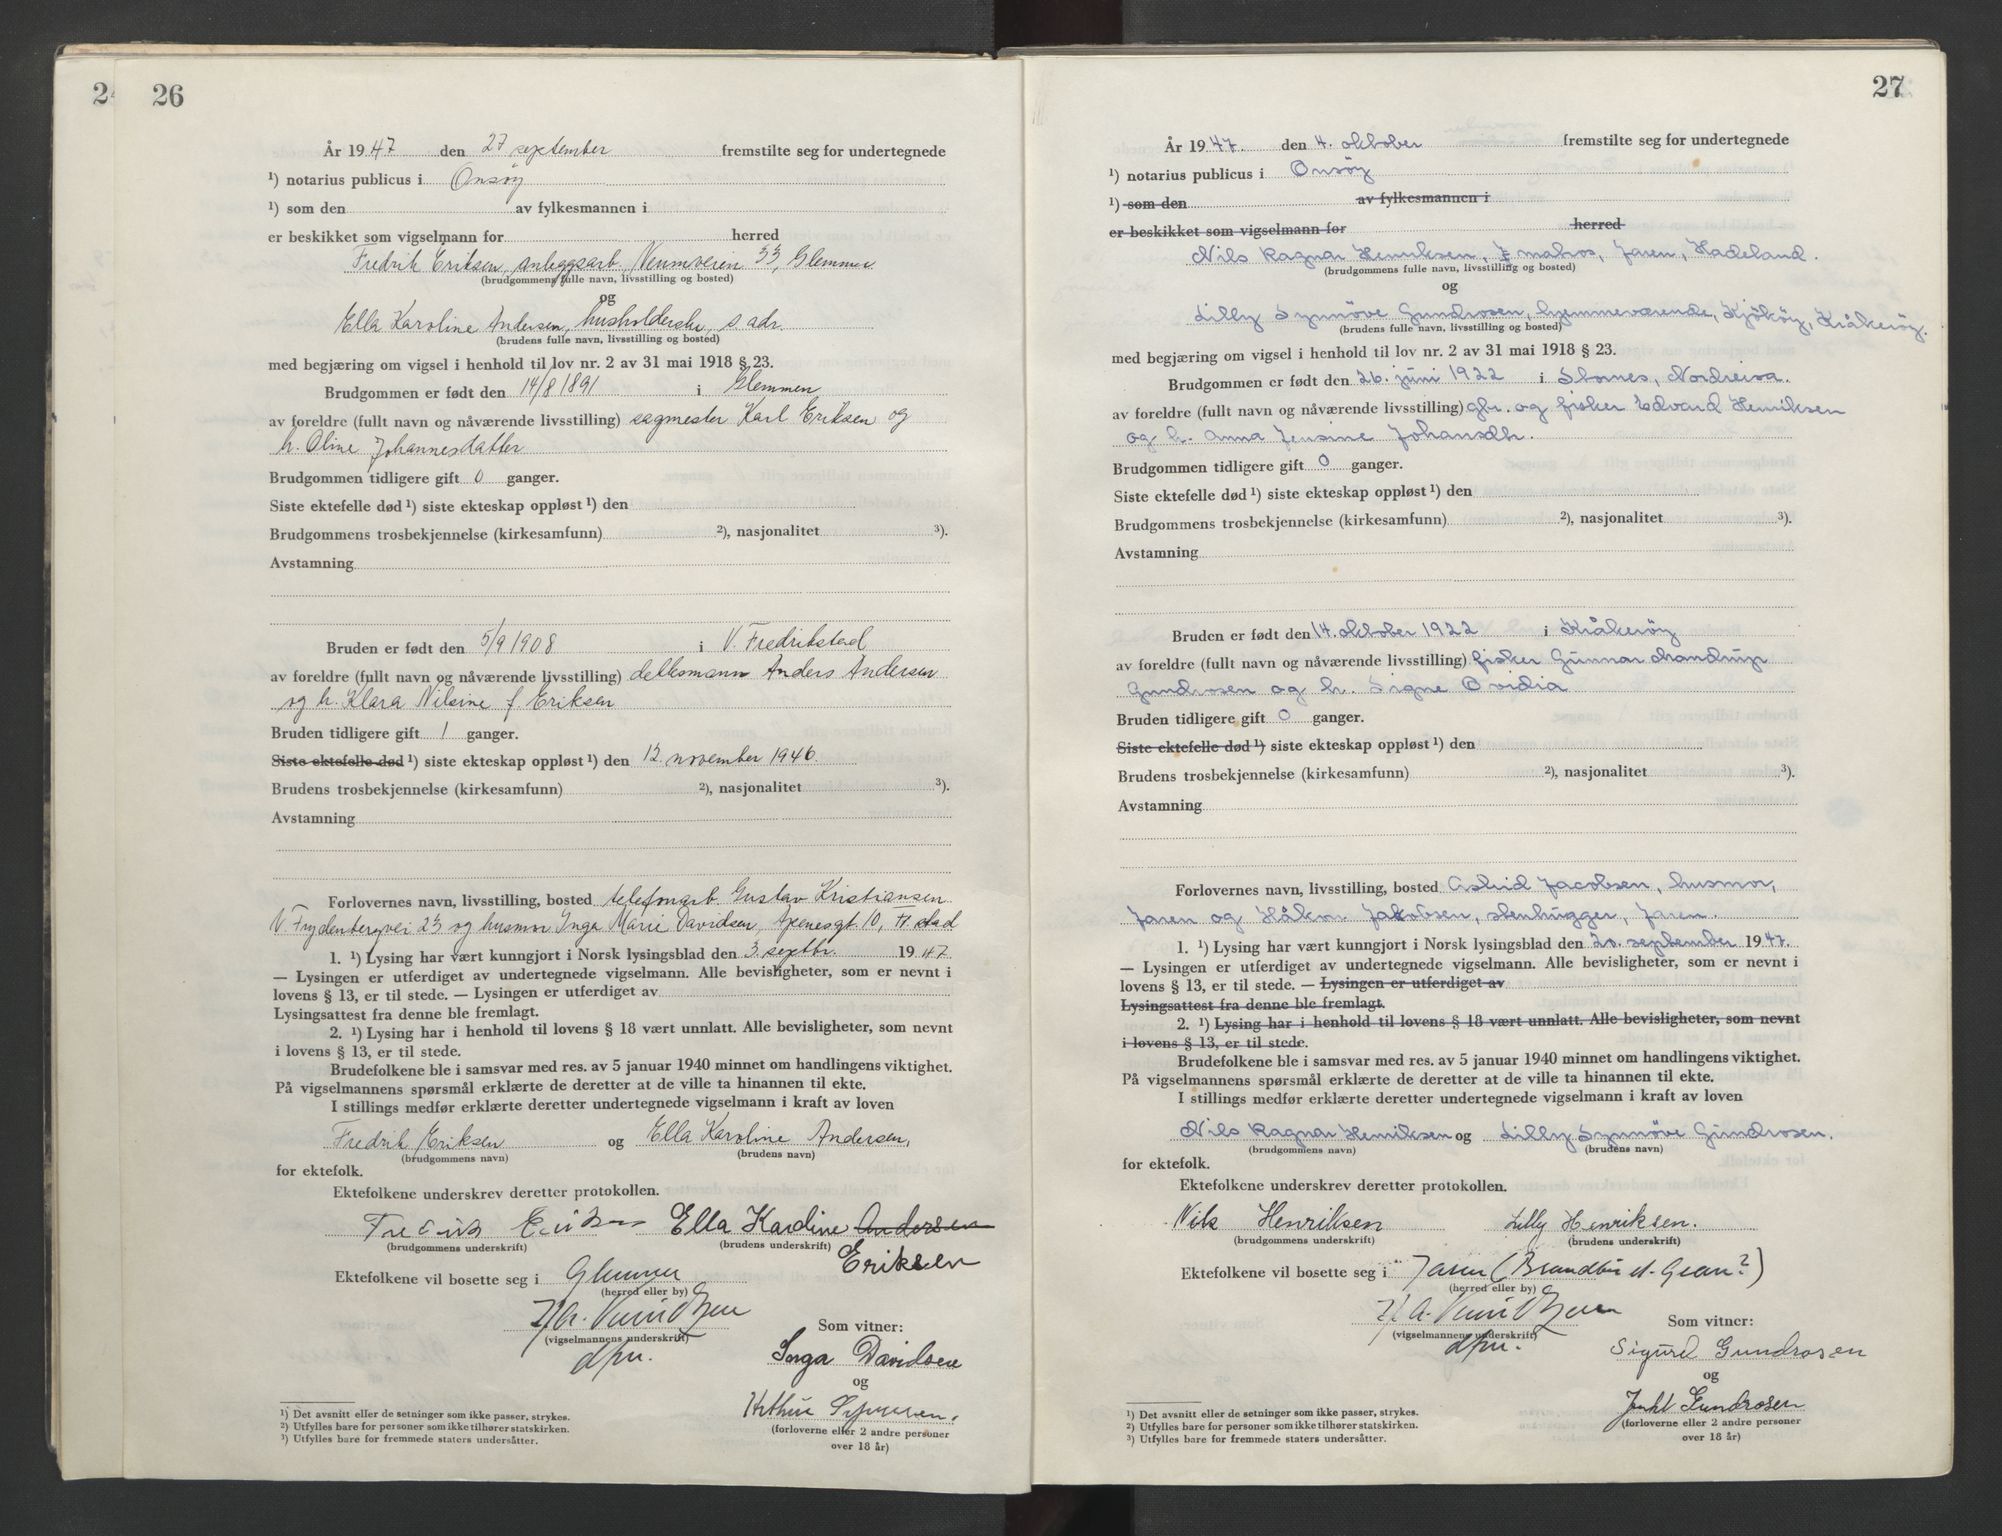 24
26
År 1947 den 27 september fremstilte seg for undertegnede
¹) notarius publicus i Onsøy
¹) som den av fylkesmannen i
er beskikket som vigselmann for herred
Fredrik Eriksen, anleggsarb. Neumveien 33, Glemmen
(brudgommens fulle navn, livsstilling og bosted)
og
Ella Karoline Andersen, husholderske, s. adr.
(brudens fulle navn, livsstilling og bosted)
med begjæring om vigsel i henhold til lov nr. 2 av 31 mai 1918 § 23.
Brudgommen er født den 14/8 1891 i Glemmen
av foreldre (fullt navn og nåværende livsstilling) sagmester Karl Eriksen og
h. Oline Johannesdatter
Brudgommen tidligere gift 0 ganger.
Siste ektefelle død ¹) siste ekteskap oppløst ¹) den
Brudgommens trosbekjennelse (kirkesamfunn) ²), nasjonalitet ³).
Avstamning
Bruden er født den 5/9 1908 i V. Fredrikstad
av foreldre (fullt navn og nåværende livsstilling) dekksmann Anders Andersen
og h. Klara Nilsine f. Eriksen
Bruden tidligere gift 1 ganger.
Siste ektefelle død ¹) siste ekteskap oppløst ¹) den 12. november 1946.
Brudens trosbekjennelse (kirkesamfunn) ²), nasjonalitet ³).
Avstamning
Forlovernes navn, livsstilling, bosted telefonarb. Gustav Kristiansen
V. Frydenbergvei 23 og husmor Inga Marie Davidsen, Apenesgt. 10, Fr.stad
1. ¹) Lysing har vært kunngjort i Norsk lysingsblad den 3. septbr. 1947
— Lysingen er utferdiget av undertegnede vigselmann. Alle bevisligheter, som er nevnt i
lovens § 13, er til stede. — Lysingen er utferdiget av
Lysingsattest fra denne ble fremlagt.
2. ¹) Lysing har i henhold til lovens § 18 vært unnlatt. Alle bevisligheter, som nevnt
i lovens § 13, er til stede.
Brudefolkene ble i samsvar med res. av 5 januar 1940 minnet om handlingens viktighet.
På vigselmannens spørsmål erklærte de deretter at de ville ta hinannen til ekte.
I stillings medfør erklærte deretter undertegnede vigselmann i kraft av loven
Fredrik Eriksen og Ella Karoline Andersen,
(brudgommens navn) (brudens navn)
for ektefolk.
Ektefolkene underskrev deretter protokollen.
Fredrik Eriksen Ella Karoline Andersen
(brudgommens underskrift) (brudens underskrift) Eriksen
Ektefolkene vil bosette seg i Glemmen
(herred eller by)
(vigselmannens underskrift)
Som vitner:
Inga Davidsen
og
(forloverne eller 2 andre personer
over 18 år)
¹) Det avsnitt eller de setninger som ikke passer, strykes.
²) Utfylles bare for personer som ikke tilhører statskirken.
³) Utfylles bare for fremmede staters undersåtter.
27
År 1947. den 4. oktober fremstilte seg for undertegnede
¹) notarius publicus i Onsøy
¹) som den av fylkesmannen i
er beskikket som vigselmann for herred
Nils Ragnar Henriksen, matros, Jaren, Hadeland.
(brudgommens fulle navn, livsstilling og bosted)
og
Lilly Synnøve Gundrosen, hjemmeværende, Kjøkøy, Kråkerøy.
(brudens fulle navn, livsstilling og bosted)
med begjæring om vigsel i henhold til lov nr. 2 av 31 mai 1918 § 23.
Brudgommen er født den 26. juni 1922 i Stornes, Nordreisa.
av foreldre (fullt navn og nåværende livsstilling) gbr. og fisker Edvard Henriksen
og h. Anna Jensine Johansdtr.
Brudgommen tidligere gift 0 ganger.
Siste ektefelle død ¹) siste ekteskap oppløst ¹) den
Brudgommens trosbekjennelse (kirkesamfunn) ²), nasjonalitet ³).
Avstamning
Bruden er født den 14. oktober 1922 i Kråkerøy
av foreldre (fullt navn og nåværende livsstilling) fisker Gunnar Mandrup
Gundrosen og h. Signe Ovidia
Bruden tidligere gift 0 ganger.
Siste ektefelle død ¹) siste ekteskap oppløst ¹) den
Brudens trosbekjennelse (kirkesamfunn) ²), nasjonalitet ³).
Avstamning
Forlovernes navn, livsstilling, bosted Astrid Jacobsen, husmor,
Jaren og Håkon Jakobsen, stenhugger, Jaren.
1. ¹) Lysing har vært kunngjort i Norsk lysingsblad den 20. september 1947.
— Lysingen er utferdiget av undertegnede vigselmann. Alle bevisligheter, som er nevnt i
lovens § 13, er til stede. — Lysingen er utferdiget av
Lysingsattest fra denne ble fremlagt.
2. ¹) Lysing har i henhold til lovens § 18 vært unnlatt. Alle bevisligheter, som nevnt
i lovens § 13, er til stede.
Brudefolkene ble i samsvar med res. av 5 januar 1940 minnet om handlingens viktighet.
På vigselmannens spørsmål erklærte de deretter at de ville ta hinannen til ekte.
I stillings medfør erklærte deretter undertegnede vigselmann i kraft av loven
Nils Ragnar Henriksen og Lilly Synnøve Gundrosen.
(brudgommens navn) (brudens navn)
for ektefolk.
Ektefolkene underskrev deretter protokollen.
Nils Henriksen Lilly Henriksen.
(brudgommens underskrift) (brudens underskrift)
Ektefolkene vil bosette seg i Jaren (Brandbu el. Gran?)
(herred eller by)
(vigselmannens underskrift)
Som vitner:
Sigurd Gundrosen
og
Gundrosen
(forloverne eller 2 andre personer
over 18 år)
¹) Det avsnitt eller de setninger som ikke passer, strykes.
²) Utfylles bare for personer som ikke tilhører statskirken.
³) Utfylles bare for fremmede staters undersåtter.